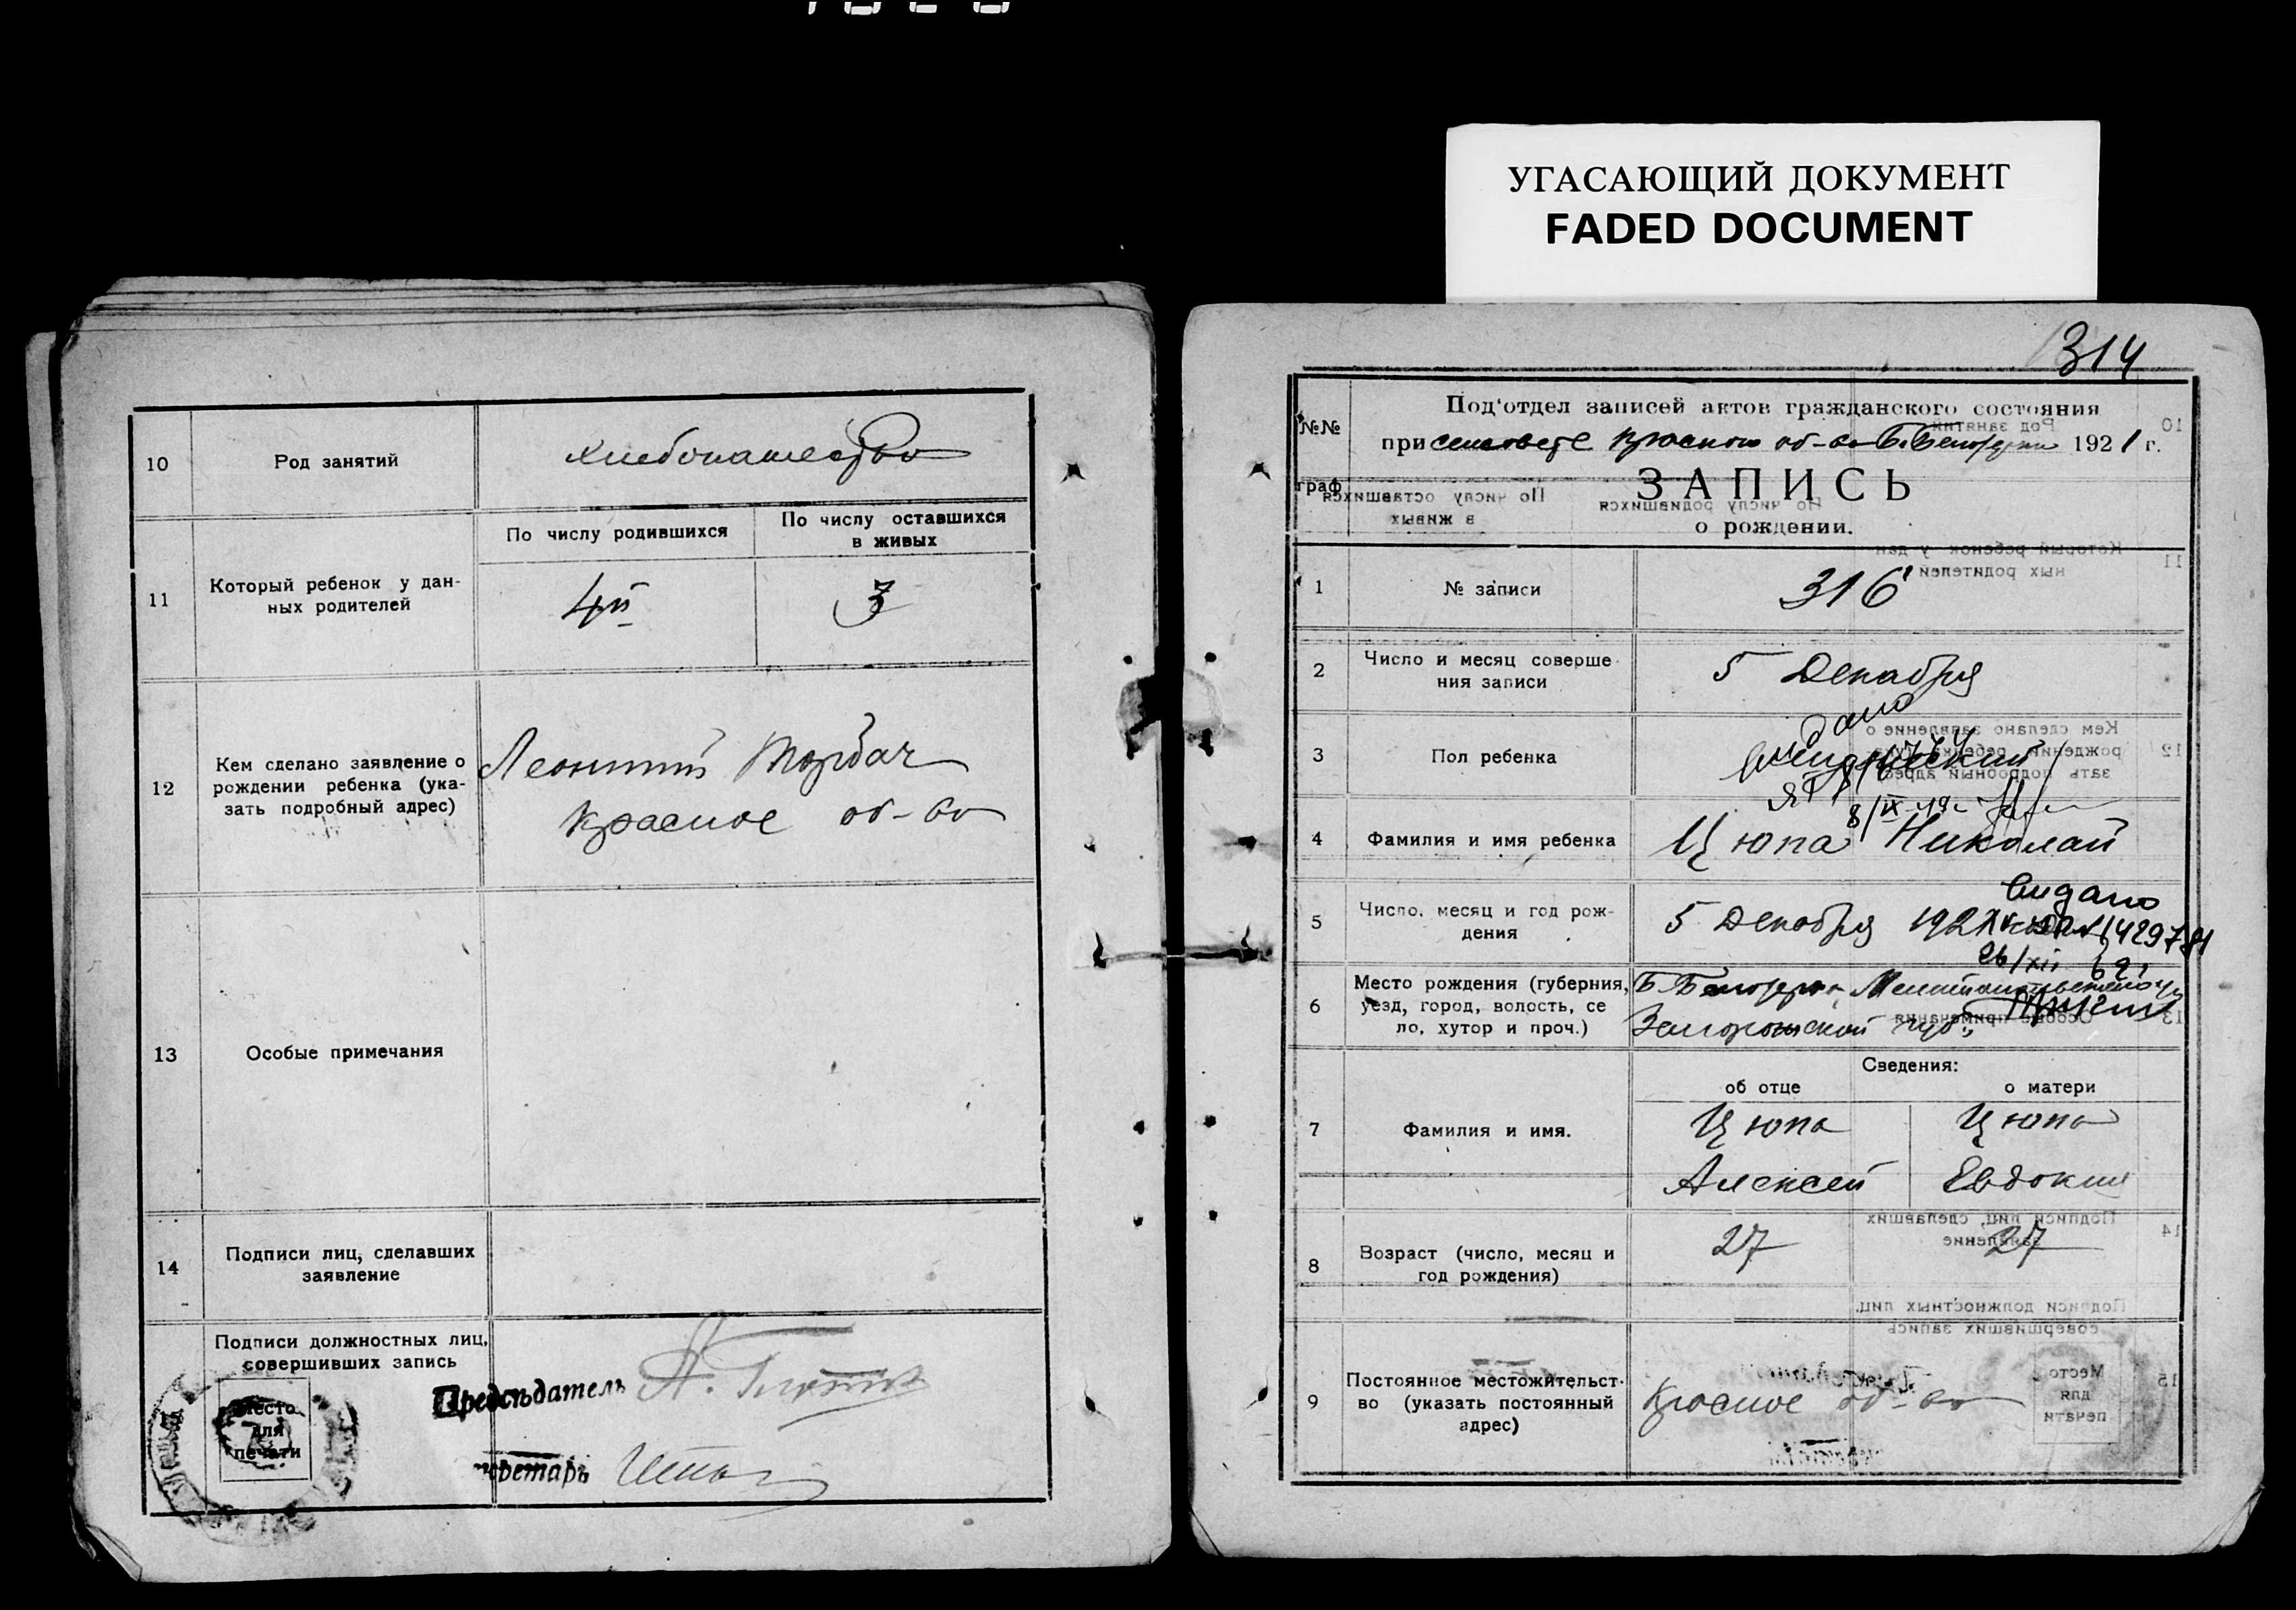 УГАСАЮЩИЙ ДОКУМЕНТ
FADED DOCUMENT
10
Род занятий
хлебопашество
11
Который ребенок у дан-
ных родителей
По числу родившихся
По числу оставшихся
в живых
4й
3
12
Кем сделано заявление о
рождении ребенка (ука-
зать подробный адрес)
Леонтий Торбач
Красное об-во
13
Особые примечания
14
Подписи лиц, сделавших
заявление
Подписи должностных лиц,
совершивших запись
Место
для
печати
Председатель
314
№№
граф
Под'отдел записей актов гражданского состояния
при сельсовете Красного об-ва Б. Белозерки 1921 г.
ЗАПИСЬ
о рождении.
1
№ записи
316
2
Число и месяц соверше-
ния записи
5 Декабря
3
Пол ребенка
мужеский
8/IX
4
Фамилия и имя ребенка
Цюпа Николай
5
Число, месяц и год рож-
дения
5 Декабря 1921
Видано
26/XII
6
Место рождения (губерния,
уезд, город, волость, се
ло, хутор и проч.)
Б. Белозерка Мелитопольского у
Запорожской губ.
Сведения:
об отце
о матери
7
Фамилия и имя.
Цюпа
Алексей
Цюпа
Евдокия
8
Возраст (число, месяц и
год рождения)
27
27
9
Постоянное местожительст-
во (указать постоянный
адрес)
Красное об-во